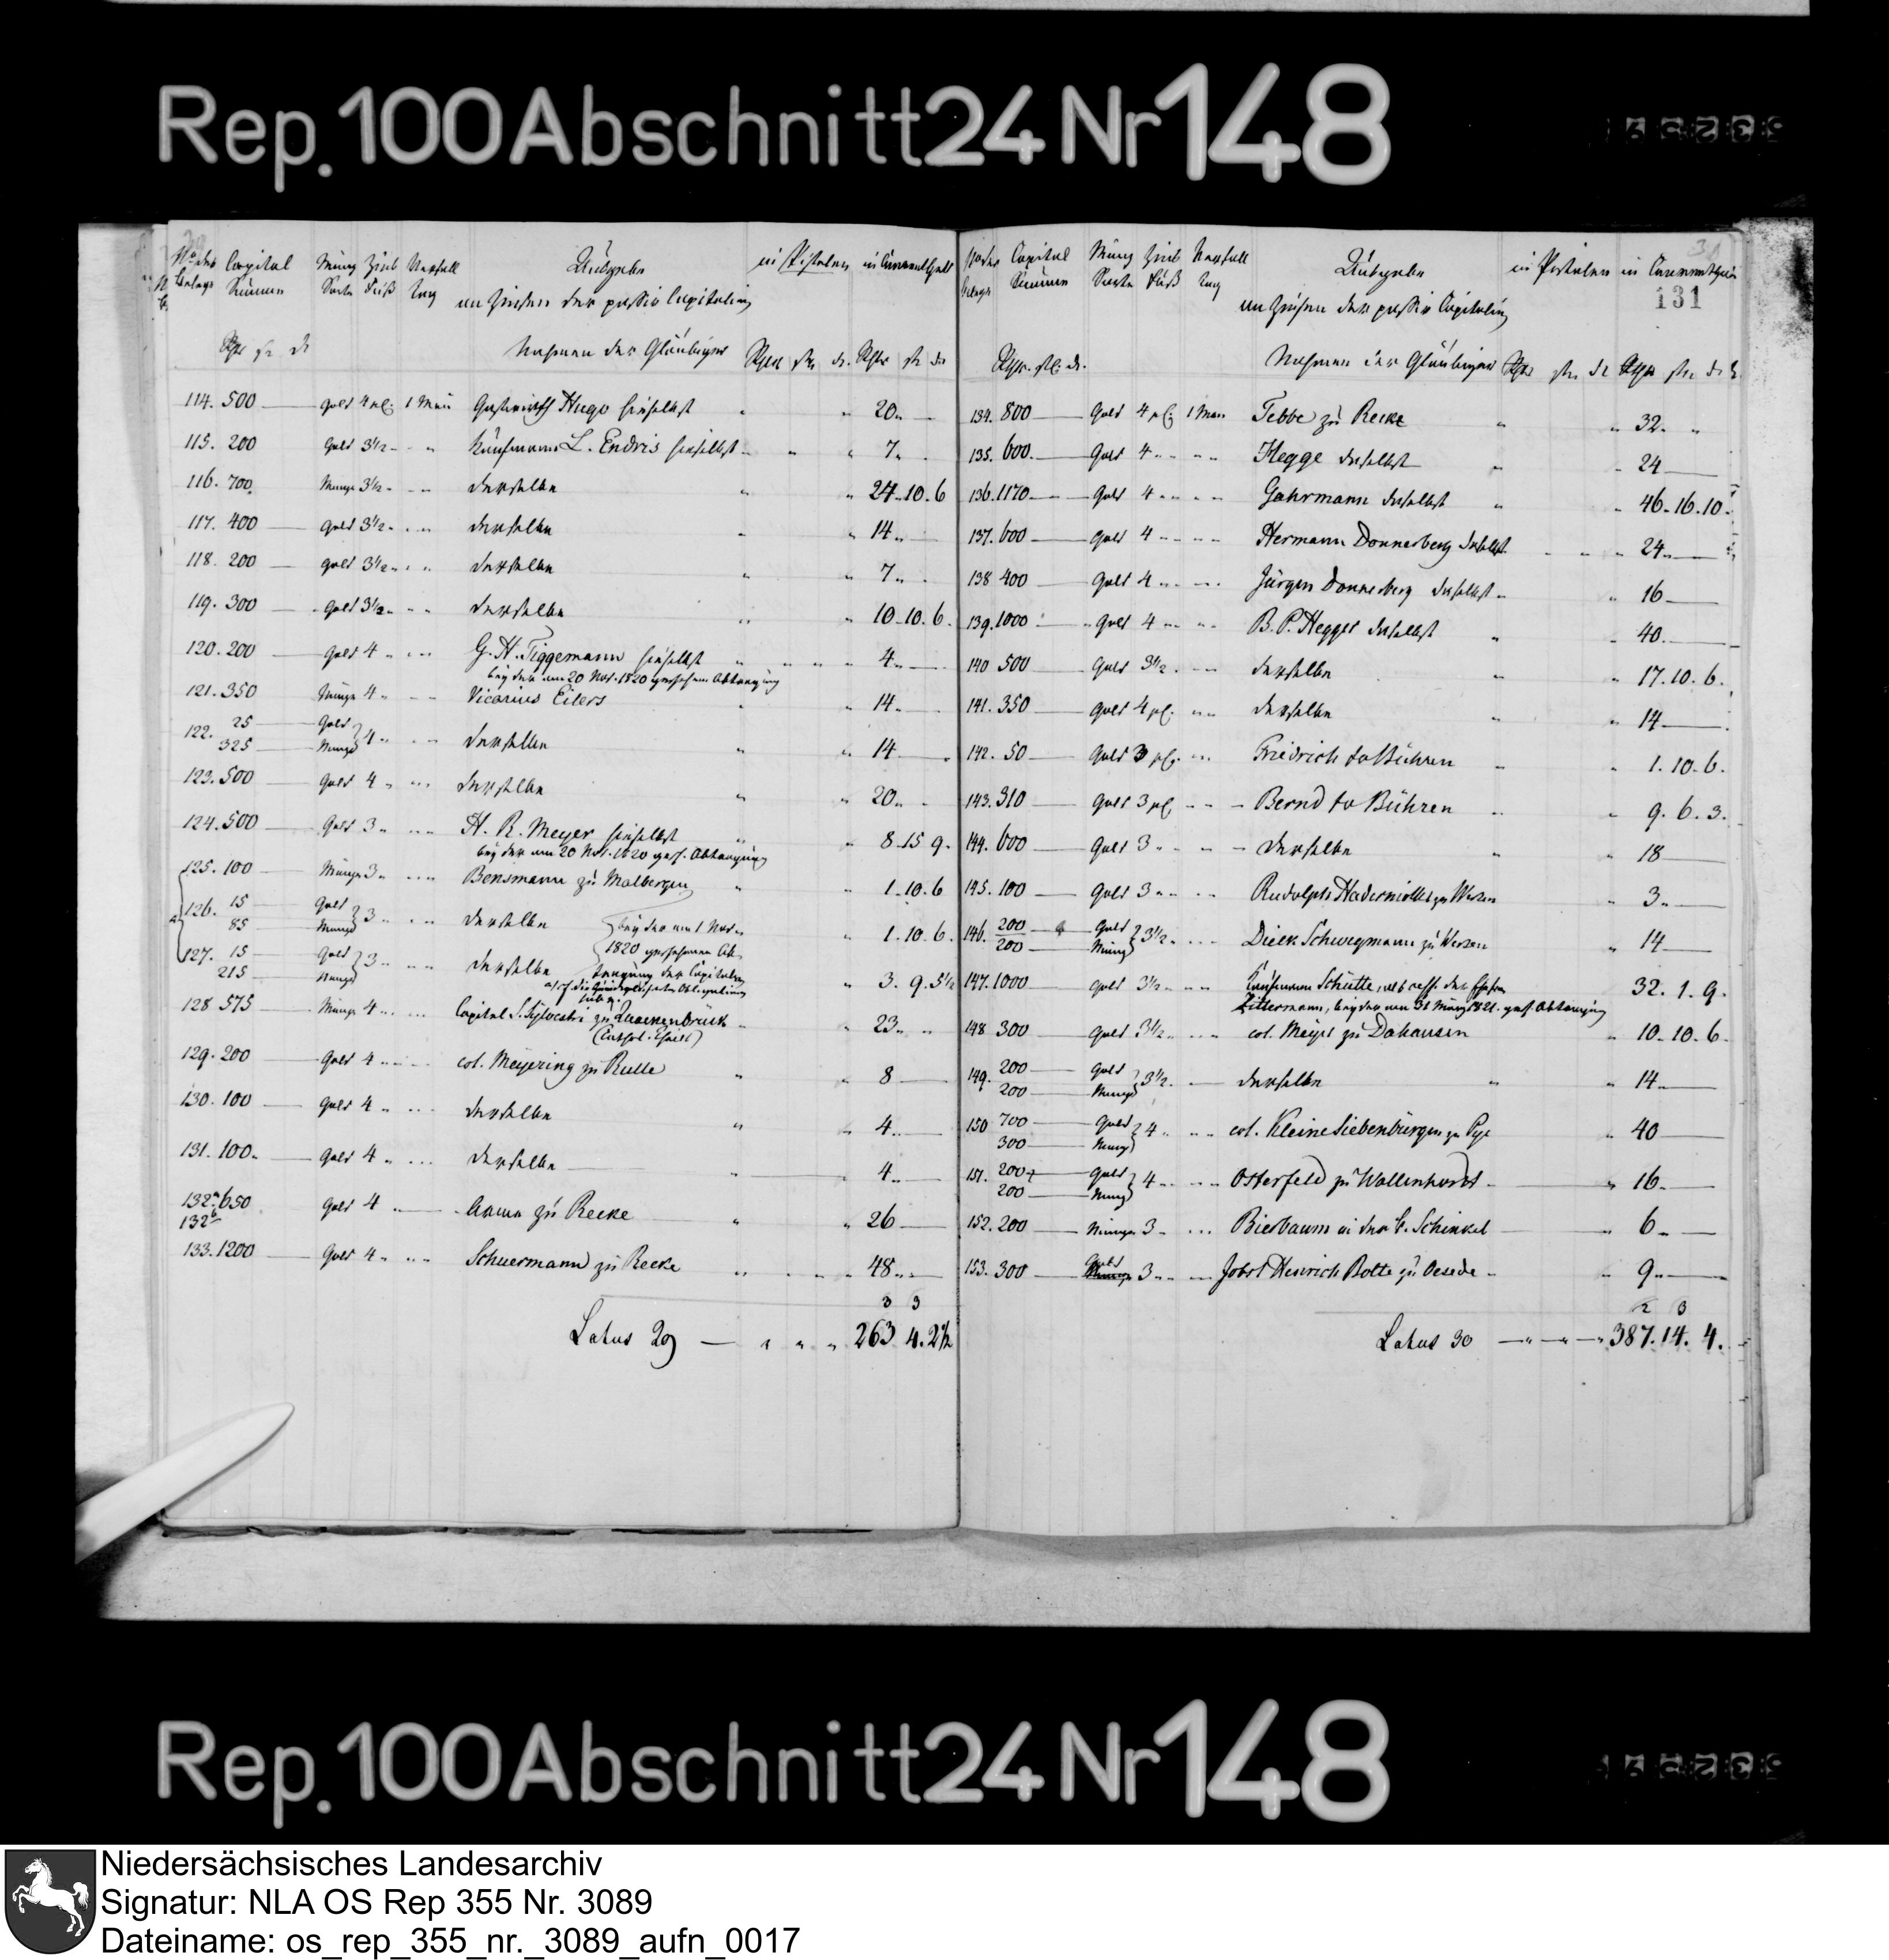 Rep. 100 Abschnitt 24 Nr 148
29
No des Capital Münz Zins Verfall Ausgabe in Pistolen in Courantgeld
Belags Summen Sorte Fuß Tag an Zinsen der passiv Capitalien
Rthr ß d Nahmen der Gläubiger Rthr ß d. Rthr ß d
114. 500 Gold 4 pC. 1 May Hugo hieselbst 20
115. 200 Gold 3½ Kaufmann L. Endris hieselbst 7
116. 700 Münze 3½ derselbe 24. 10. 6
117. 400 Gold 3½ derselbe 14
118. 200 Gold 3½ derselbe 7
119. 300 Gold 3½ derselbe 10. 10. 6.
120. 200 Gold 4 G. H. Tiggemann hieselbst 4
bey der am 20 Nov. 1820 geschehenen Abtragung
121. 350 Münze 4 Vicarius Eilers 14
122. 25 Gold
325 Münze 4 derselbe 14
123. 500 Gold 4 derselbe 20
124. 500 Gold 3 H. R. Meyer hieselbst 8. 15. 9.
bey der am 20 Nov. 1820 gesch. Abtragung
125. 100 Münze 3 Bensmann zu Malbergen 1. 10. 6
126. 15 Gold
85 Münze 3 derselbe 1. 10. 6.
bey der am 1 Nov.
1820 geschehenen Ab-
127. 15 Gold
215 Münze 3 derselbe 3. 9. 5½
tragung der Capitalien
128 575 Münze 4 Capitel S. Sylvestri zu Quackenbrück 23
129. 200 Gold 4 col. Meyering zu Rulle 8
130. 100 Gold 4 derselbe 4
131. 100. Gold 4 derselbe 4
132.a 650 Gold 4 zu Recke 26
132b
133. 1200 Gold 4 Schuermann zu Recke 48
3 3
Latus 29 263 4. 2½
31
131
No des Capital Münz Zins Verfall Ausgabe in Pistolen in Courantgeld
Belags Summen Sorte Fuß Tag an Zinsen der passiv Capitalien
Rthr. ß. d. Nahmen der Gläubiger Rthr ß d Rthr ß d
134. 800 Gold 4 pC. 1 May Tebbe zu Recke 32.
135. 600 Gold 4 Hegge daselbst 24
136. 1170 Gold 4 Gahrmann daselbst 46. 16. 10.
137. 600 Gold 4 Hermann Donnerberg daselbst 24
138 400 Gold 4 Jürgen Donnerberg daselbst 16
139. 1000 Gold 4 B. P. Hegger daselbst 40.
140 500 Gold 3½ derselbe 17. 10. 6.
141. 350 Gold 4 pC. derselbe 14
142. 50 Gold 3 pC. Friedrich to Bühren 1. 10. 6.
143. 310 Gold 3 pC. Bernd to Bühren 9. 6. 3.
144. 600 Gold 3 derselbe 18
145. 100 Gold 3 Rudolph zu Wersen 3.
146. 200 Gold
200 Münze 3½ Dierk Schwegmann zu Wersen 14
147. 1000 Gold 3½ Kaufmann Schütte, als cess. der 32. 1. 9.
bey der am 31 März 1821. gesch. Abtragung
148 300 Gold 3½ col. Meyer zu Dahausen 10. 10. 6.
149. 200 Gold
200 Münze 3½ derselbe 14
150 700 Gold
300 Münze 4 col. Kleine Siebenbürgen zu Pye 40
151. 200 Gold
200 Münze 4 Osterfeld zu Wallenhorst 16
152. 200 Münze 3 Bierbaum in der B. Schinkel 6
153. 300 Gold 3 Jobst Henrich Bolte zu Oesede 9
2 3
Latus 30 387. 14. 4.
Rep. 100 Abschnitt 24 Nr 148
Niedersächsisches Landesarchiv
Signatur: NLA OS Rep 355 Nr. 3089
Dateiname: os_rep_355_nr._3089_aufn_0017